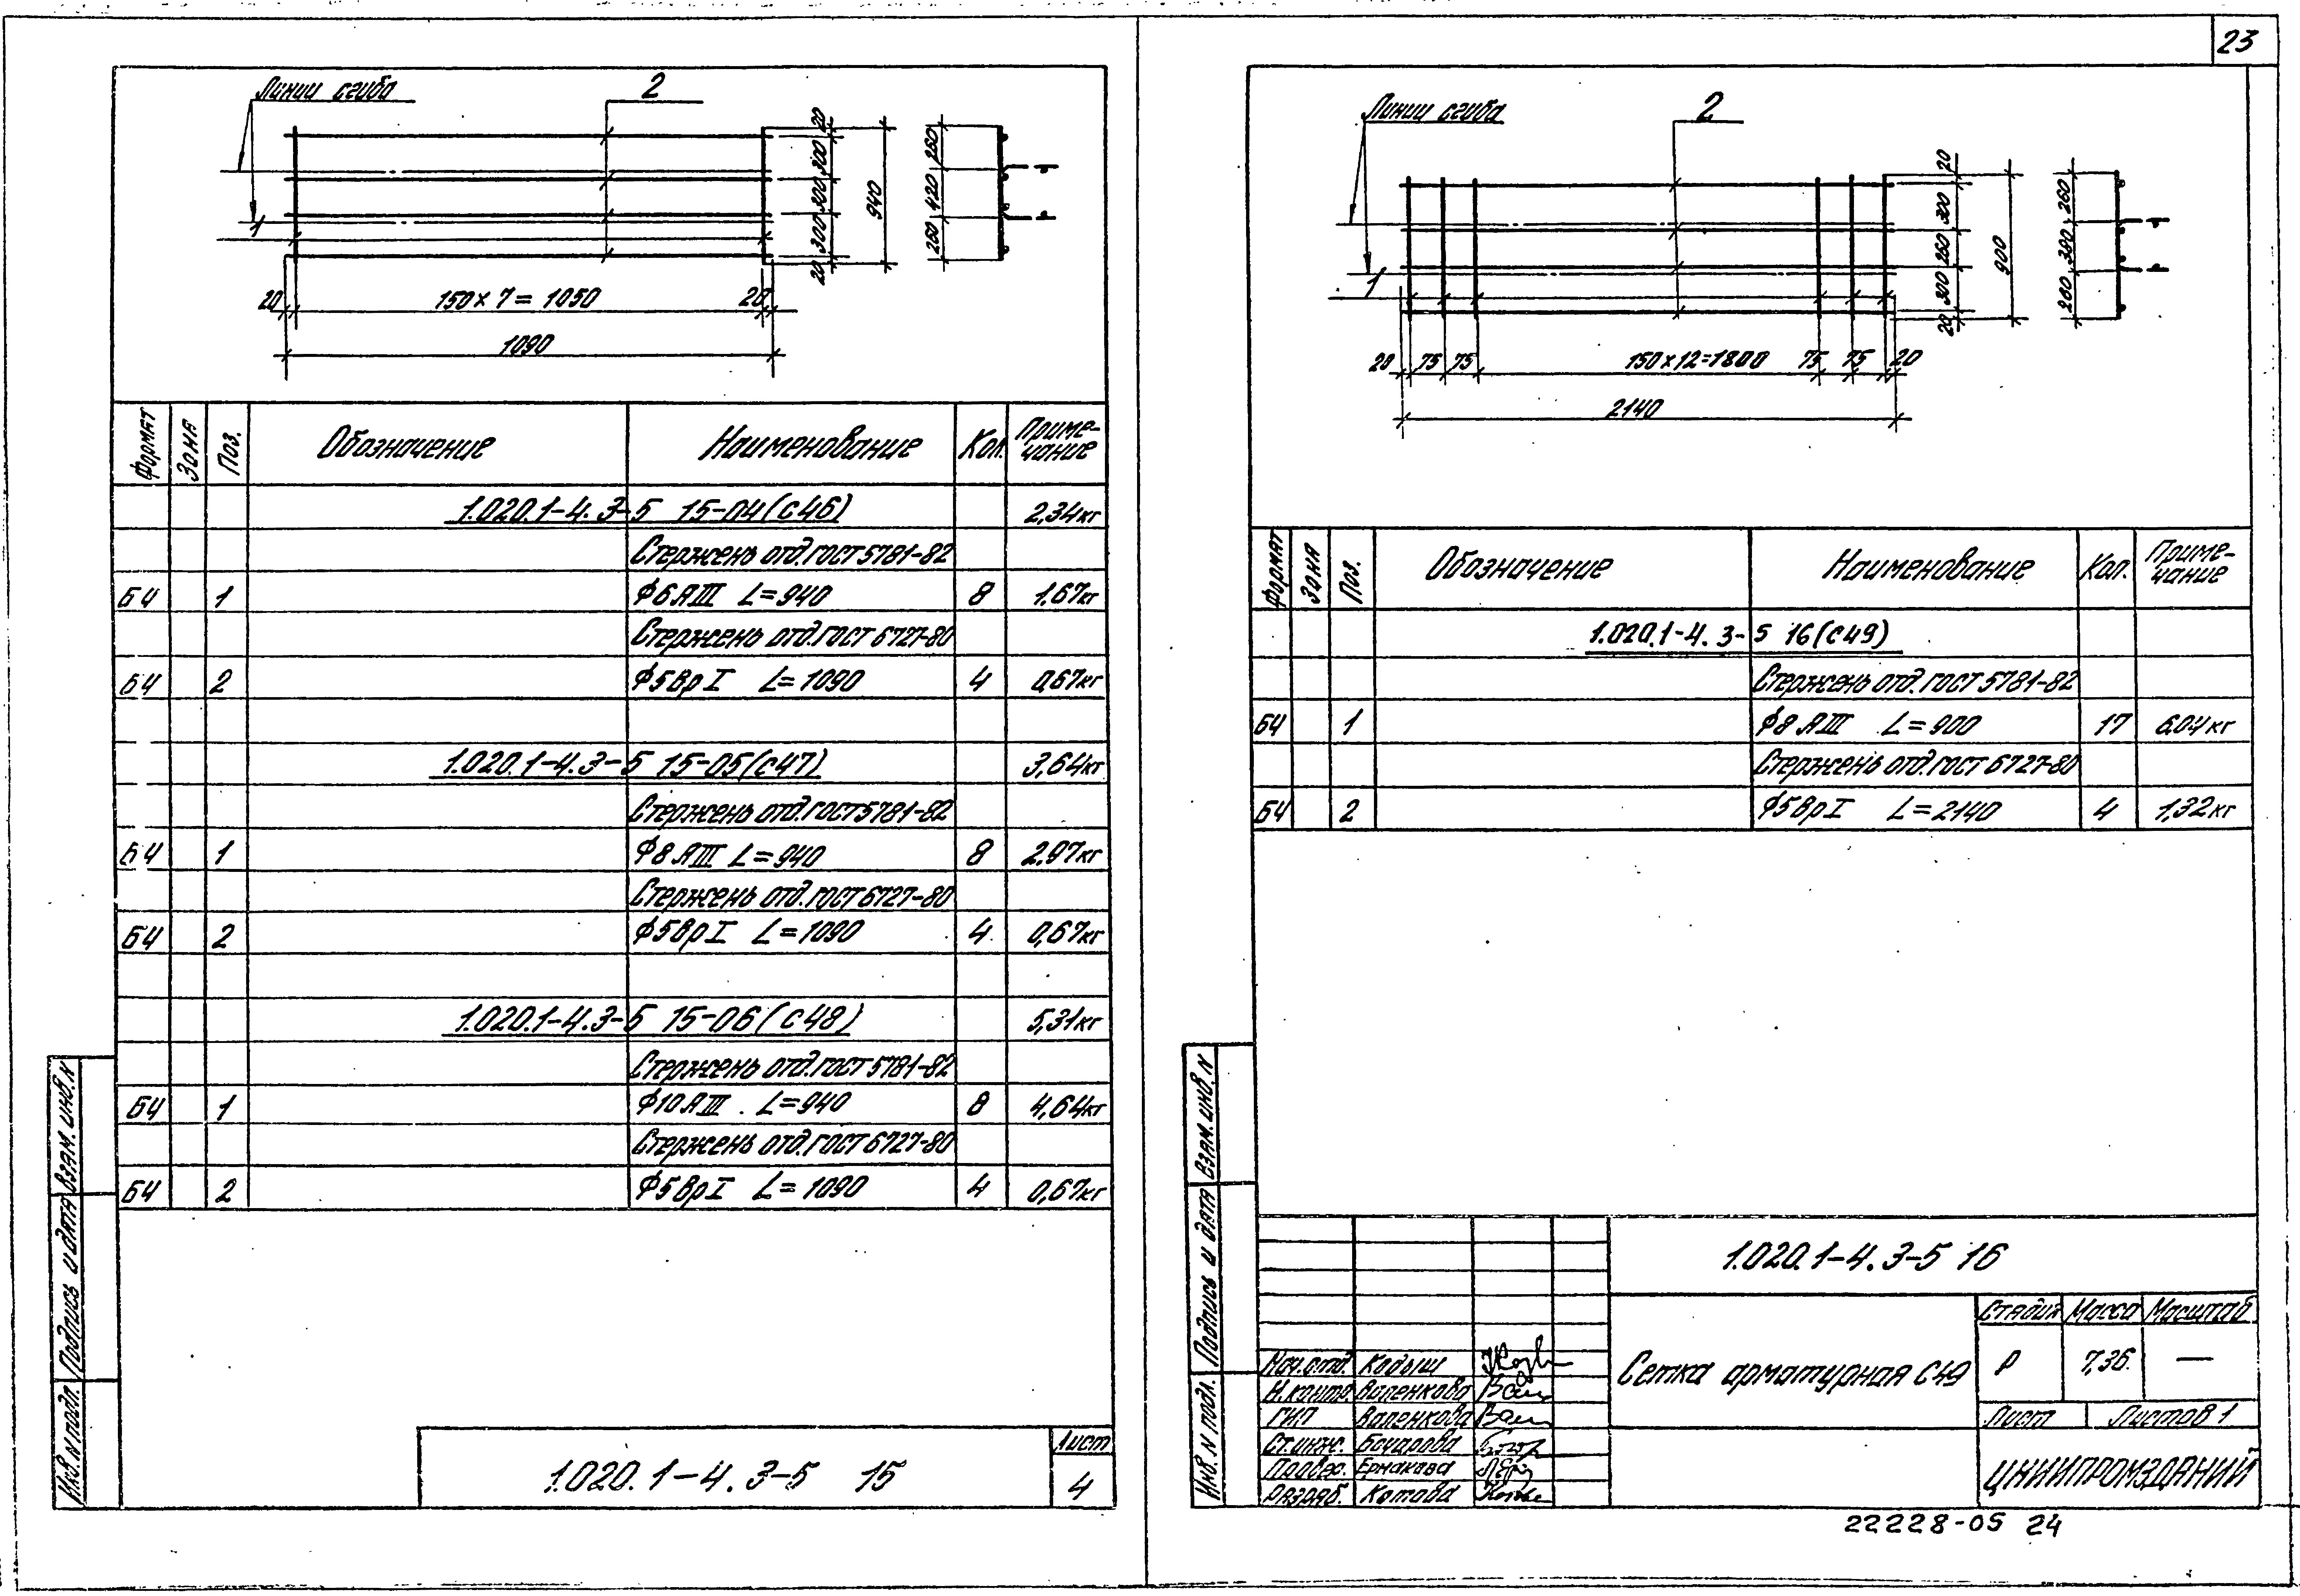 23
Линии сгиба
2
1
20
300
300
300
20
940
260
420
260
20
150×7=1050
20
1090
Формат Зона Поз. Обозначение Наименование Кол. Приме-
чание
1.020.1-4.3-5 15-04(С46) 2,34кг
Стержень отд. ГОСТ 5781-82
БЧ 1 ϕ6АIII L=940 8 1,67кг
Стержень отд. ГОСТ 6727-80
БЧ 2 ϕ5ВрI L=1090 4 0,67кг
1.020.1-4.3-5 15-05(С47) 3,64кг
Стержень отд. ГОСТ 5781-82
БЧ 1 ϕ8АIII L=940 8 2,97кг
Стержень отд. ГОСТ 6727-80
БЧ 2 ϕ5ВрI L=1090 4 0,67кг
1.020.1-4.3-5 15-06(С48) 5,31кг
Стержень отд. ГОСТ 5781-82
БЧ 1 ϕ10АIII L=940 8 4,64кг
Стержень отд. ГОСТ 6727-80
БЧ 2 ϕ5ВрI L=1090 4 0,67кг
Инв. N подл. Подпись и дата Взам. инв. N
1.020.1-4.3-5 15
Лист
4
Линии сгиба
2
1
20
300
260
300
20
900
260
380
260
20 75 75 150×12=1800 75 75 20
2140
Формат Зона Поз. Обозначение Наименование Кол. Приме-
чание
1.020.1-4.3-5 16(С49)
Стержень отд. ГОСТ 5781-82
БЧ 1 ϕ8АIII L=900 17 6,04кг
Стержень отд. ГОСТ 6727-80
БЧ 2 ϕ5ВрI L=2140 4 1,32кг
Инв. N подл. Подпись и дата Взам. инв. N
1.020.1-4.3-5 16
Сетка арматурная С49
Стадия Масса Масштаб
Р 7,36 —
Лист Листов 1
ЦНИИПРОМЗДАНИЙ
Нач.отд. Кодыш
Н.контр. Валенкова
ГИП Валенкова
Ст.инж. Бочарова
Провер. Ермакова
Разраб. Котова
22228-05 24